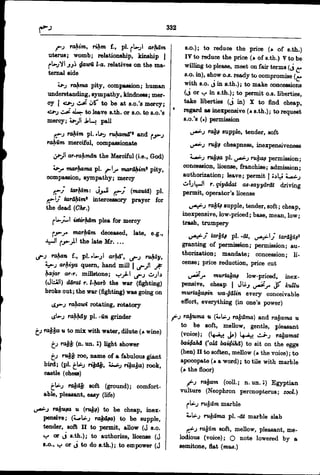 رحم 332
رحم raḥim, riḥm f., pl. ارحام arḥām
uterus; womb; relationship, kinship |
ذوو الارحام ḏawū l-a. relatives on the ma-
ternal side
رحمة raḥma pity, compassion; human
understanding, sympathy, kindness; mer-
cy | كان تحت رحمته to be at s.o.'s mercy;
to leave s.th. or s.o. to s.o.'s
mercy; بساط الرحمة pall
رحيم raḥīm pl. رحماء ruḥamā² and رحوم
raḥūm merciful, compassionate
الرحمن ar-raḥmān the Merciful (i.e., God)
مرحمة marḥama pl. مراحم marāḥim² pity,
compassion, sympathy; mercy
ترحيم tarḥīm: (mould) pl.
تراحيم tarāḥīm² intercessory prayer for
the dead (Chr.)
استرحام istirḥām plea for mercy
مرحوم marḥūm deceased, late, e.g.,
المرحوم the late Mr. ...
رحى raḥan f., pl. ارحاء arḥā', رحي ruḥīy,
ارحية arḥiya quern, hand mill | حجر الرحى
ḥajar ar-r. millstone;
(القتال) dārat r. l-ḥarb the war (fighting)
broke out; the war (fighting) was going on
رحوي raḥawī rotating, rotatory
raḥḥāy pl. -ūn grinder
رخ raḵḵa u to mix with water, dilute (ه wine)
رخ raḵḵ (n. un. ة) light shower
رخ ruḵḵ roc, name of a fabulous giant
bird; (pl. رخاخ riḵāḵ, رخخة riḵaḵa) rook,
castle (chess)
رخاخ raḵāḵ soft (ground); comfort-
able, pleasant, easy (life)
رخص raḵuṣa u (ruḵṣ) to be cheap, inex-
pensive; (رخاصة raḵāṣa) to be supple,
tender, soft II to permit, allow (ل s.o.
ب or في s.th.); to authorize, license (ل
s.o., ب or في to do s.th.); to empower (ل
s.o.); to reduce the price (ه of s.th.)
IV to reduce the price (ه of s.th.) V to be
willing to please, meet on fair terms (مع
s.o. in), show o.s. ready to compromise (مع
with s.o. في in s.th.); to make concessions
(في or ب in s.th.); to permit o.s. liberties,
take liberties (في in) X to find cheap,
regard as inexpensive (ه s.th.); to request
s.o.'s (ه) permission
رخص raḵṣ supple, tender, soft
رخص ruḵṣ cheapness, inexpensiveness
رخصة ruḵṣa pl. رخص ruḵaṣ permission;
concession, license, franchise; admission;
authorization; leave; permit | رخصة قيادة
السيارات r. qiyādat as-sayyārāt driving
permit, operator's license
رخيص raḵīṣ supple, tender, soft; cheap,
inexpensive, low-priced; base, mean, low;
trash, trumpery
ترخيص tarḵīṣ pl. -āt, تراخيص tarāḵīṣ²
granting of permission; permission; au-
thorization; mandate; concession; li-
cense; price reduction, price cut
مرتخص murtaḵaṣ low-priced, inex-
pensive, cheap | في كل مرتخص وغال fī kulli
murtaḵaṣin wa-ḡālin every conceivable
effort, everything (in one's power)
رخم raḵuma u (رخامة raḵāma) and raḵama u
to be soft, mellow, gentle, pleasant
(voice); raḵamat
baiḍahā ('alā baiḍihā) to sit on the eggs
(hen) II to soften, mellow (ه the voice); to
apocopate (ه a word); to tile with marble
(ه the floor)
رخم raḵam (coll.; n. un. ة) Egyptian
vulture (Neophron percnopterus; zool.)
رخام ruḵām marble
رخامة ruḵāma pl. -āt marble slab
رخيم raḵīm soft, mellow, pleasant, me-
lodious (voice); O note lowered by a
semitone, flat (mus.)